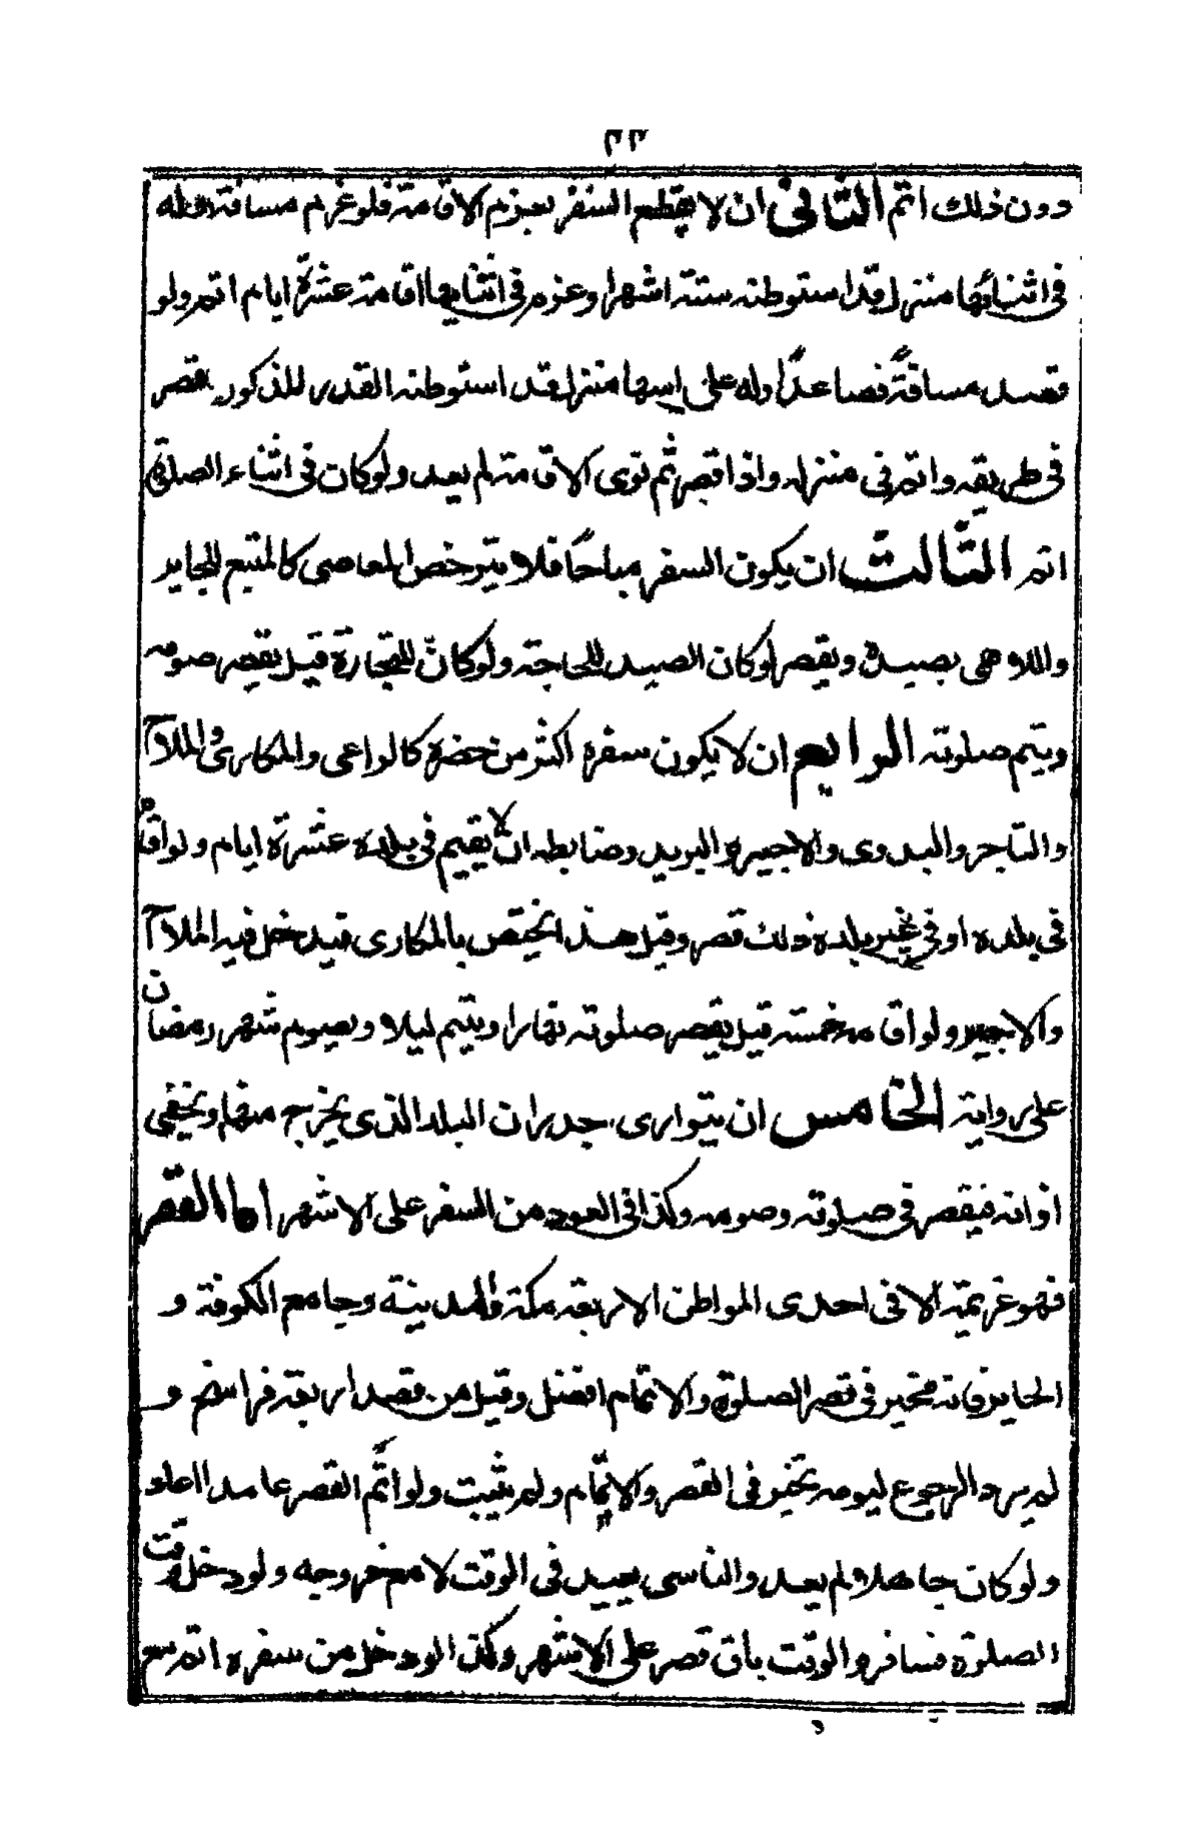 ٣٣
دون ذلك اتم الثانى ان لا يقطع السفر بعزم الاقامة فلو عزم مسافة وله
فى اثنائها منزل قد استوطنه ستة اشهر او عزم فى اثنايها اقامة عشرة ايام اتم ولو
قصد مسافة فصاعدًا وله على راسها منزل قد استوطنه القدر المذكور يقصر
فى طريقه واتم فى منزله واذا قصر ثم نوى الاقامة لم يعد ولو كان فى اثناء الصلوة
اتم الثالث ان يكون السفر مباحًا فلا يترخص العاصى كالمتبع للجاير
واللاهى بصيده ويقصر لو كان الصيد للحاجة ولو كان للتجارة قيل يقصر صومه
ويتم صلوته الرابع ان لا يكون سفره اكثر من حضره كالراعى والمكارى والملاح
والتاجر والبدوى والاجير والبريد وضابطه ان لا يقيم فى بلده عشرة ايام ولو اقام
فى بلده او فى غير بلده ذلك قصر وقيل هذا يختص بالمكارى فيدخل فيه الملاح
والاجير ولو اقام خمسة قيل يقصر صلوته نهارا ويتم ليلا ويصوم شهر رمضان
على رواية الخامس ان يتوارى جدران البلد الذى يخرج منها ويخفى
اذانه فيقصر فى صلوته وصومه وكذا فى العود من السفر على الاشهر اما القصر
فهو عزيمة الا فى احدى المواطن الاربعة مكة والمدينة وجامع الكوفة و
الحاير فانه مخير فى قصر الصلوة والاتمام افضل وقيل من قصد اربعة فراسخ و
لم يرد الرجوع ليومه تخير فى القصر والاتمام ولم يثبت ولو اتم القصر عامدا اعاد
ولو كان جاهلا لم يعد والناسى يعيد فى الوقت لا مع خروجه ولو دخل وقت
الصلوة فسافر والوقت باق قصر على الاشهر وكذا لو دخل من سفره اتم مع